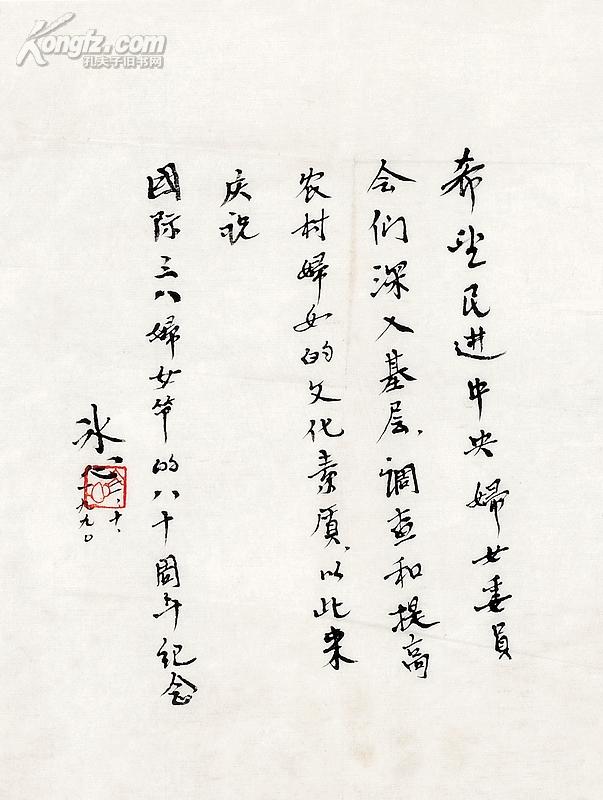 Kongfz.com
孔夫子旧书网
希望民进中央婦女委員
会们深入基层、调查和提高
农村婦女的文化素质、以此来
庆祝
國际三八婦女节的八十周年纪念
冰心
二、十、
一九九〇